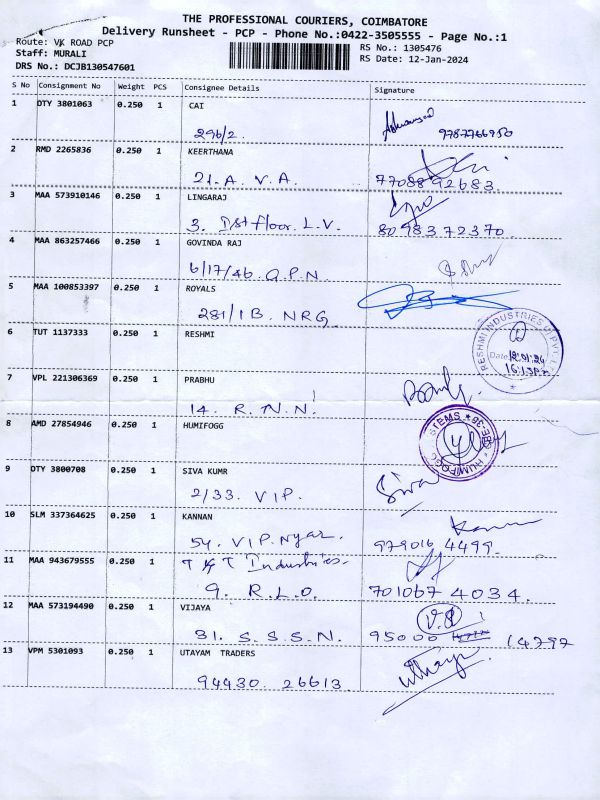 THE PROFESSIONAL COURIERS, COIMBATORE
Delivery Runsheet - PCP - Phone No.:0422-3505555 - Page No.:1
Route: VK ROAD PCP
Staff: MURALI
DRS No.: DCJB130547601
RS No.: 1305476
RS Date: 12-Jan-2024
S No Consignment No Weight PCS Consignee Details Signature
1 DTY 3801063 0.250 1 CAI
296/2. 9787766950
2 RMD 2265836 0.250 1 KEERTHANA
21. A. V. A. 7708892683
3 MAA 573910146 0.250 1 LINGARAJ
3. Ist floor. L.V. 8098372370
4 MAA 863257466 0.250 1 GOVINDA RAJ
6/17/46. G.P.N.
5 MAA 100853397 0.250 1 ROYALS
281/1B. NRG.
6 TUT 1137333 0.250 1 RESHMI
RESHMI INDUSTRIES
Date 12.01.24
7 VPL 221306369 0.250 1 PRABHU
14. R. N. N.
8 AMD 27854946 0.250 1 HUMIFOGG
9 DTY 3800708 0.250 1 SIVA KUMR
2/33. V.I.P. Siva
10 SLM 337364625 0.250 1 KANNAN
54. V.I.P. Nyar. 979016 4499.
11 MAA 943679555 0.250 1 T & T Industries.
9. R.L.O. 701067 4034.
12 MAA 573194490 0.250 1 VIJAYA
31. S.S.S.N. 95000 14297
13 VPM 5301093 0.250 1 UTAYAM TRADERS
94430 26613.